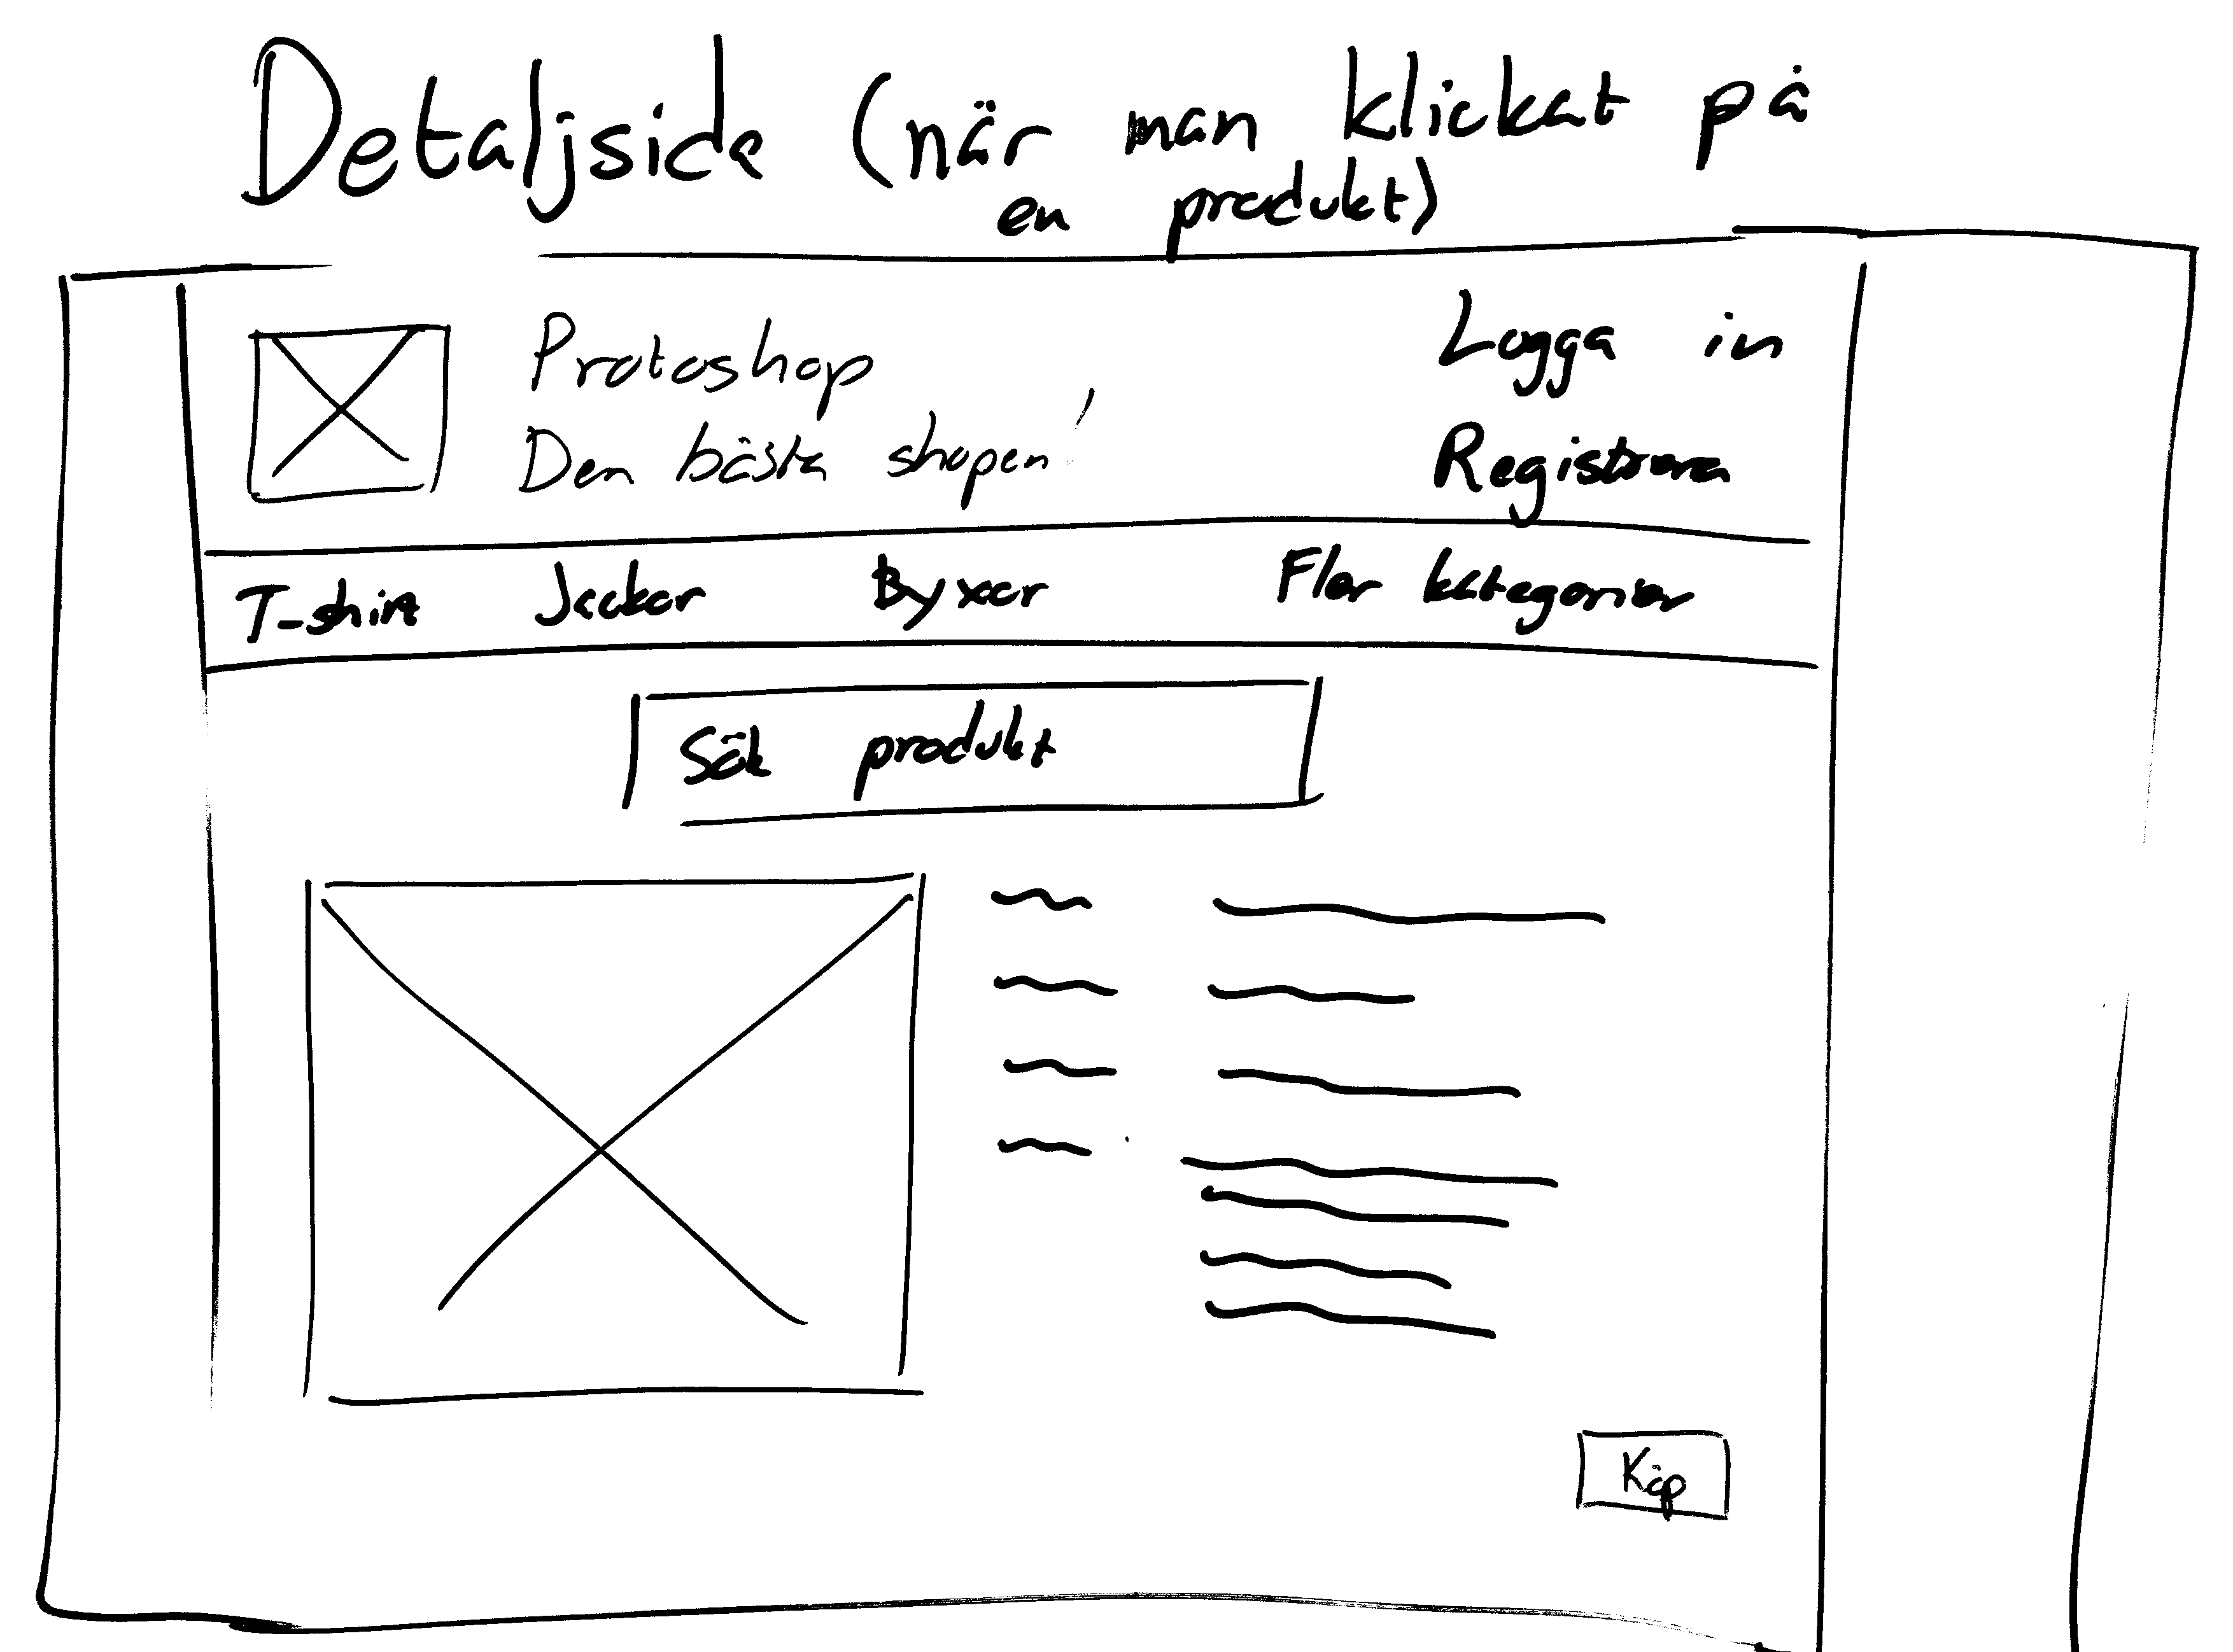 Detaljside (när man klickat på
en produkt)
Protoshop
Den bästa shopen!
Logga in
Registrera
T-shirt Jackor Byxor Fler kategorier
Sök produkt
Köp